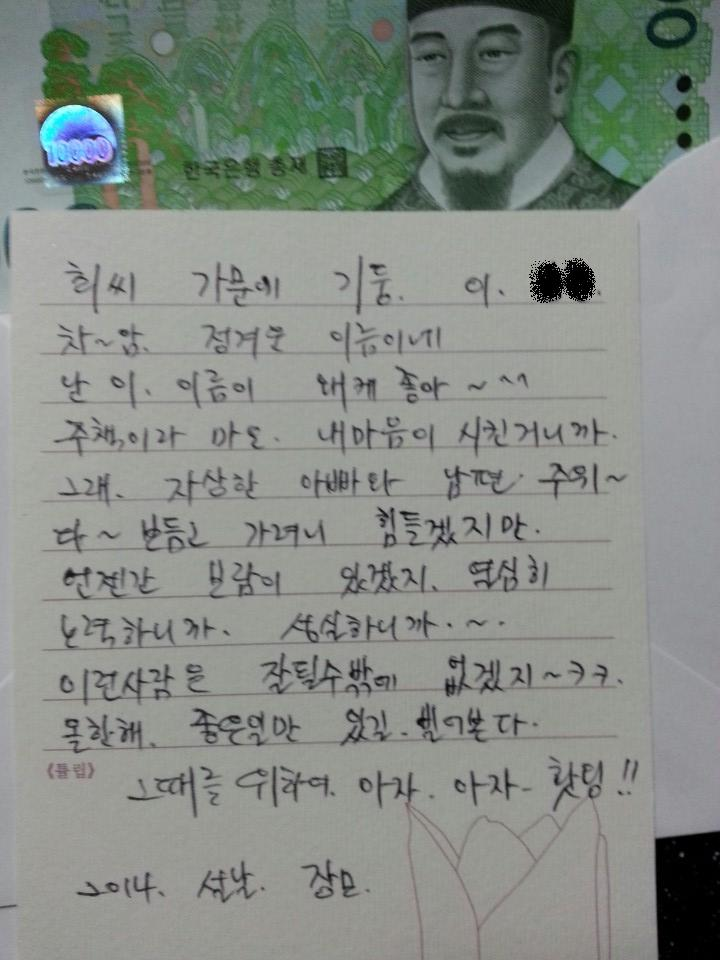 10000
한국은행 총재
최씨 가문에 기둥. 이.
차~암. 정겨운 이름이네
난 이. 이름이 왜케 좋아 ~ ^^
주책,이라 마오. 내마음이 시킨거니까.
그래. 자상한 아빠와 남편 주위~
다~ 보듬고 가려니 힘들겠지만.
언젠간 보람이 있겠지. 열심히
노력하니까. 성실하니까.~.
이런사람은 잘될수밖에 없겠지~ㅋㅋ.
올한해. 좋은일만 있길. 빌어본다.
《튤립》
그때를 위하여. 아자. 아자- 홧팅!!
2014. 설날. 장모.